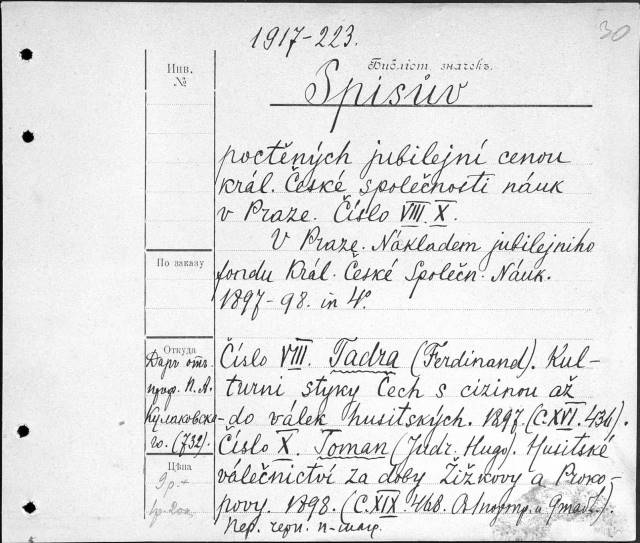 30
1917-223.
Библіот. значекъ.
Инв.
№
Spisův
poctěných jubilejní cenou
král. České společnosti náuk
v Praze. Číslo VIII. X.
V Praze. Nákladem jubilejního
fondu Král. České Společn. Náuk.
1897-98. in 4°.
По заказу
Откуда
Даръ отъ
проф. П. А.
Кулаковска-
го. (732).
Цѣна
Číslo VIII. Tadra (Ferdinand). Kul-
turní styky Čech s cizinou až
do válek husitských. 1897. (C. XVI. 436).
Číslo X. Toman (Judr. Hugo). Husitské
válečnictví za doby Žižkovy a Proko-
povy. 1898. (C. XIX. 468.